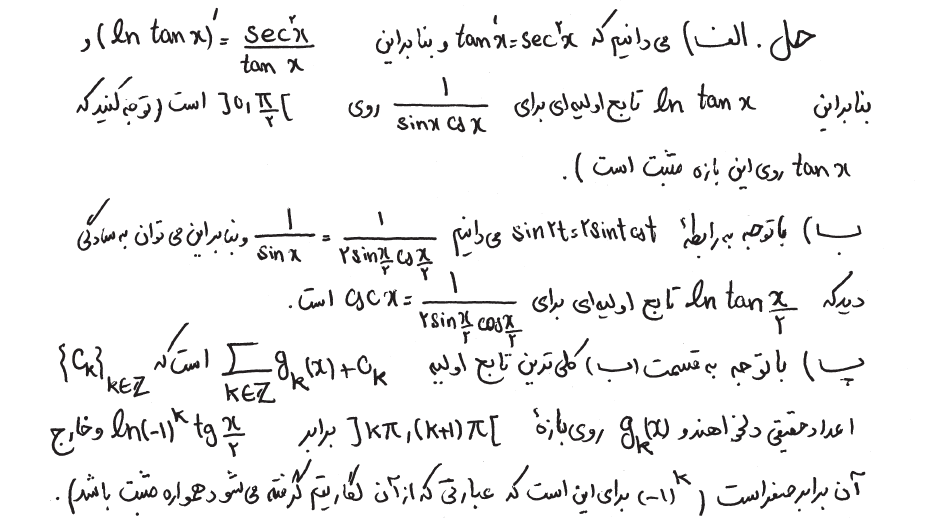 حل . الف) می‌دانیم که tan'x = sec²x و بنابراین (ln tan x)' = sec²x / tan x و
بنابراین ln tan x تابع اولیه‌ای برای ۱ / sinx cos x روی ]۰, π/۲[ است (توجه کنید که
tan x روی این بازه مثبت است ).
ب) باتوجه به رابطهٔ sin۲t=۲sint cost می‌دانیم ۱ / sin x = ۱ / ۲sin x/۲ cos x/۲ وبنابراین می‌توان به سادگی
دید که ln tan x/۲ تابع اولیه‌ای برای csc x = ۱ / ۲sin x/۲ cos x/۲ است.
پ) باتوجه به قسمت (ب) کلی‌ترین تابع اولیه ∑_{k∈Z} g_k(x)+c_k است که {c_k}_{k∈Z}
اعداد حقیقی دلخواهند و g_k(x) روی بازهٔ ]kπ, (k+1)π[ برابر ln(-1)^k tg x/۲ و خارج
آن برابر صفر است ( (-1)^k برای این است که عبارتی که از آن لگاریتم گرفته می‌شود همواره مثبت باشد).